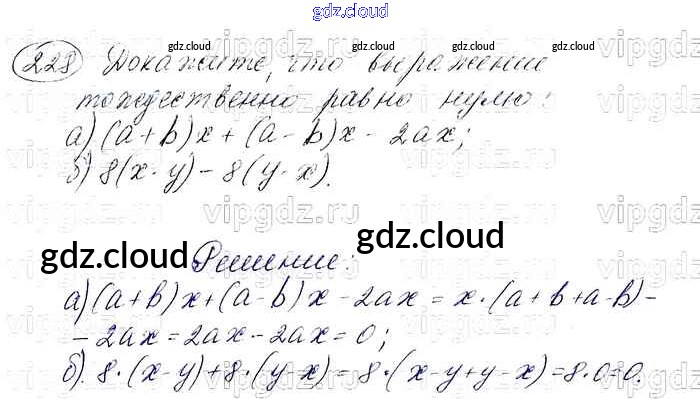 gdz.cloud
228 Докажите, что выражение
тождественно равно нулю:
а) (a+b)x + (a-b)x - 2ax;
б) 8(x-y) - 8(y-x).
Решение:
а) (a+b)x+(a-b)x-2ax = x·(a+b+a-b)-
-2ax=2ax-2ax=0;
б). 8·(x-y)+8·(y-x)=8·(x-y+y-x)=8·0=0.
gdz.cloud gdz.cloud gdz.cloud
gdz.cloud gdz.cloud gdz.cloud
gdz.cloud gdz.cloud
vipgdz.ru